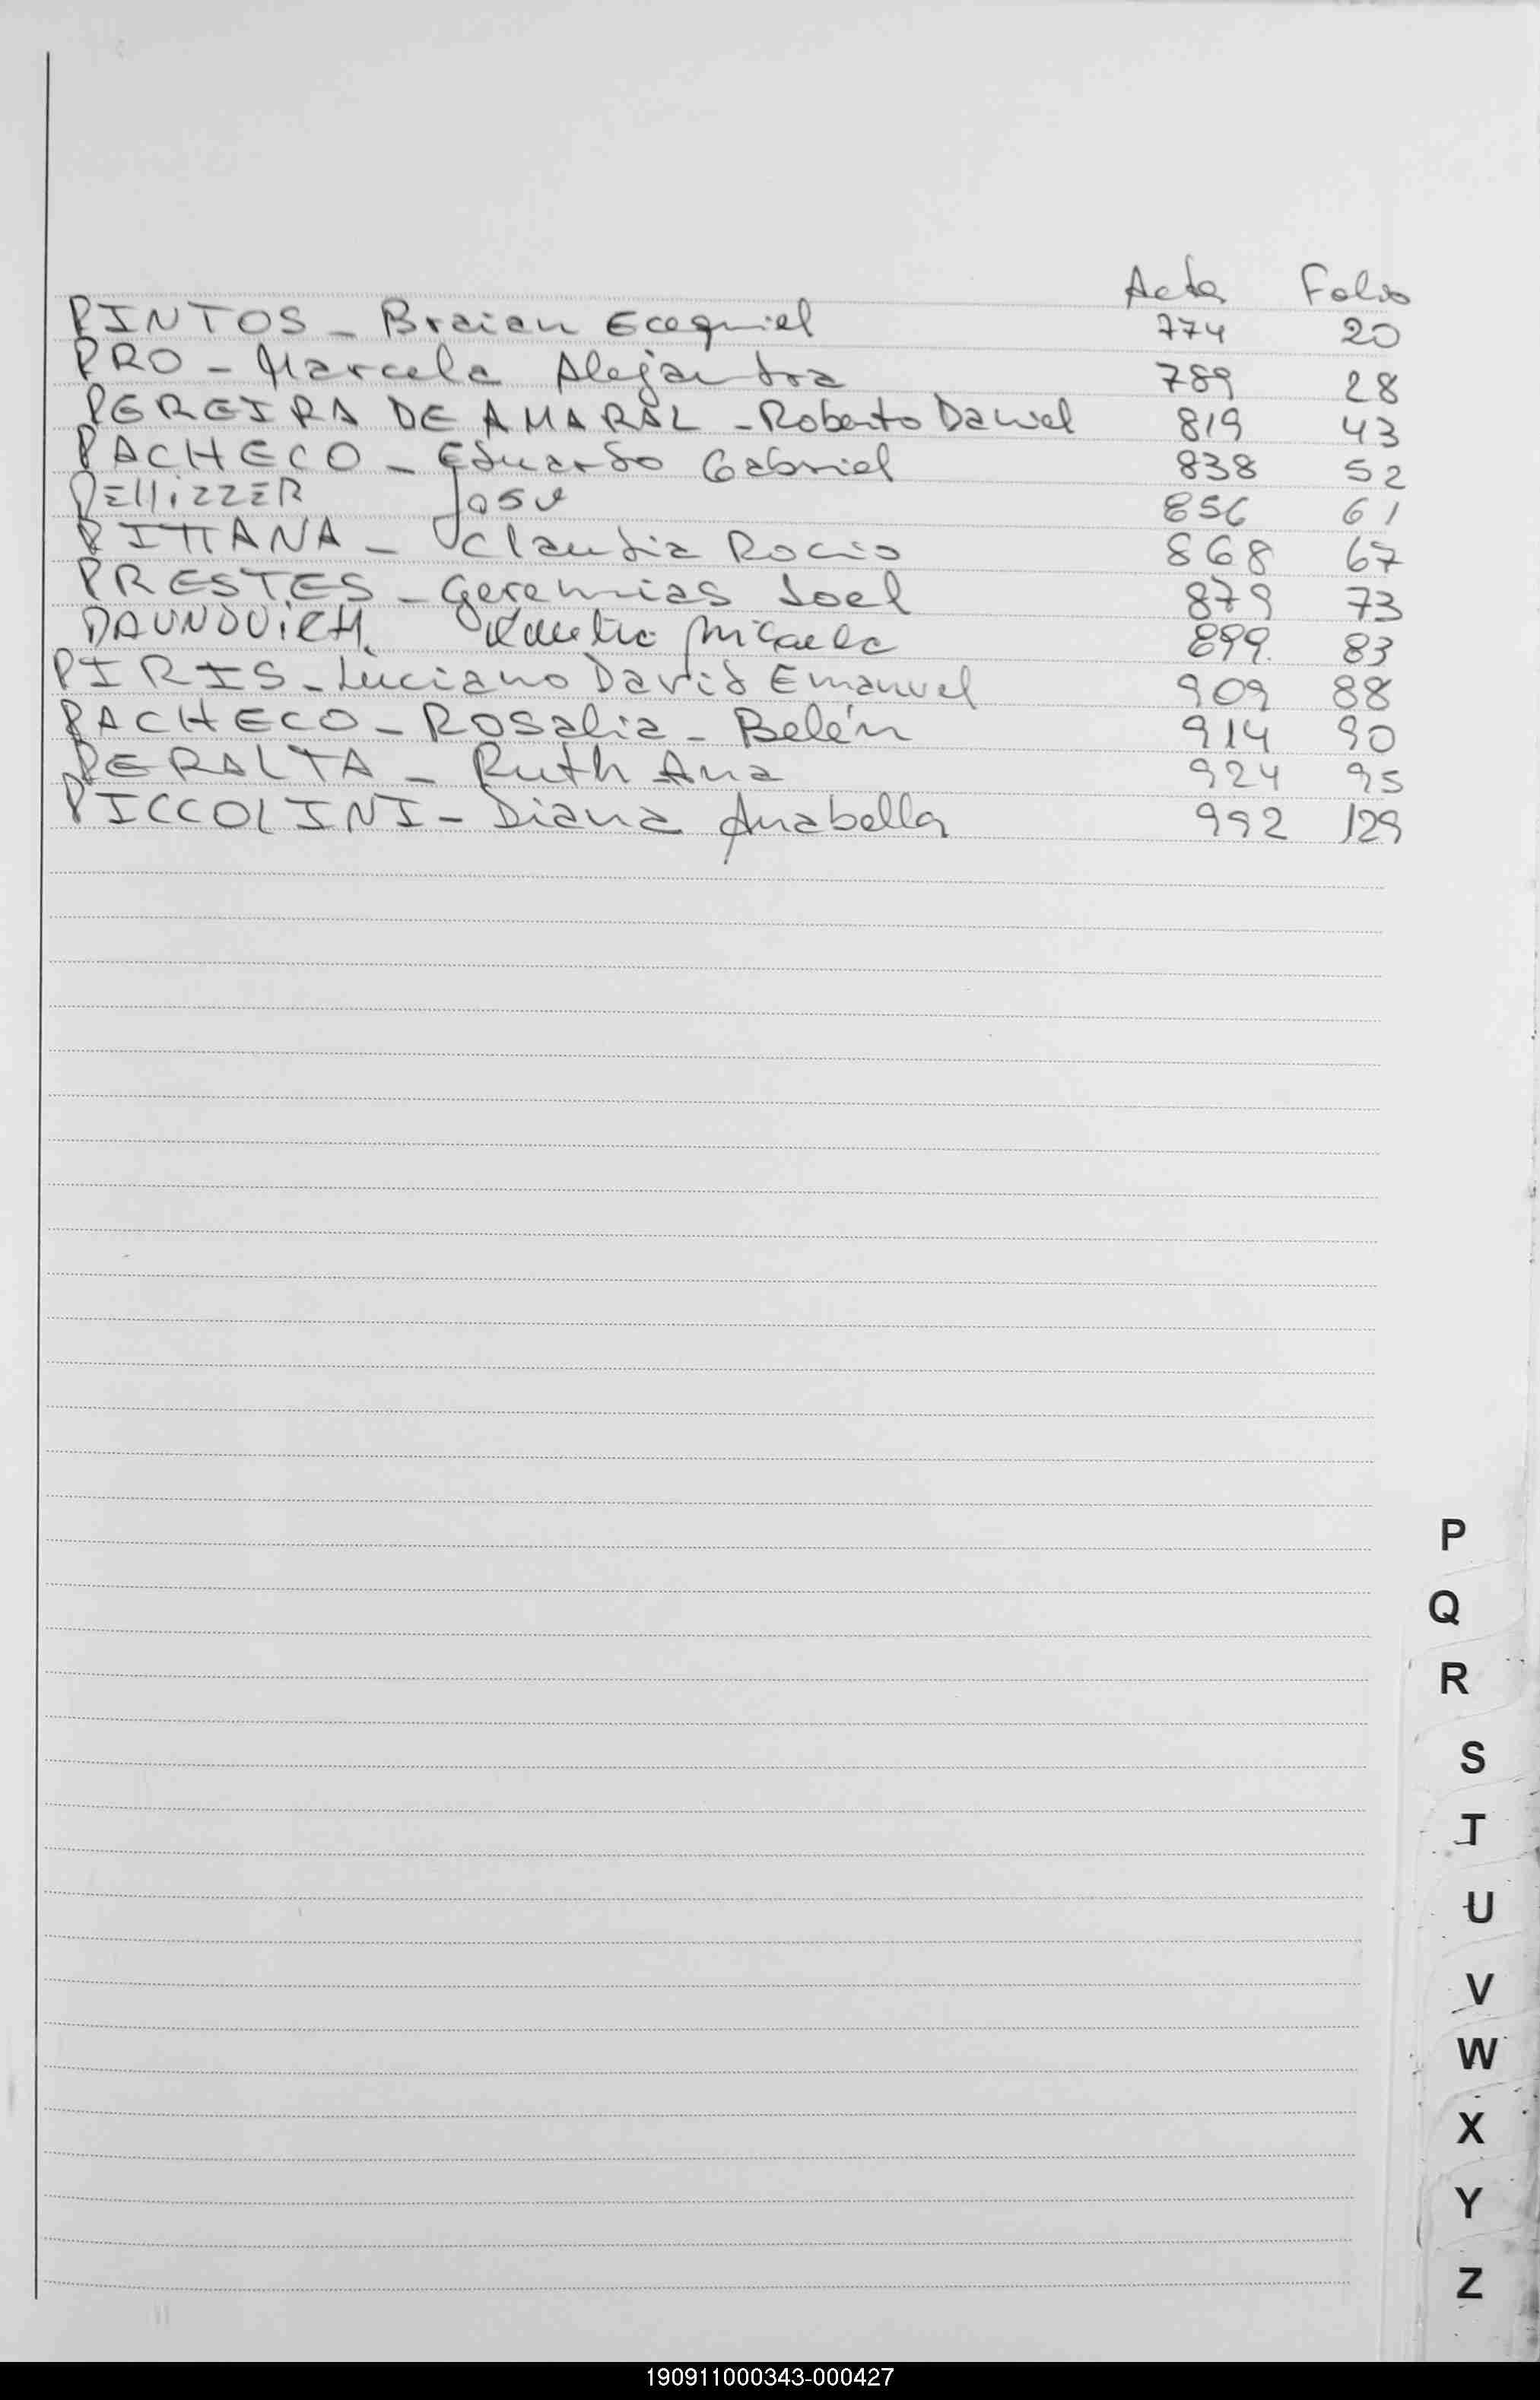 Acta Folio
PINTOS - Braian Ecequiel 774 20
PRO - Marcela Alejandra 789 28
PEREIRA DE AMARAL - Roberto Daniel 819 43
PACHECO - Eduardo Gabriel 838 52
PELLIZZER José 856 61
PITTANA - Claudia Rocio 868 67
PRESTES - Geremias Joel 879 73
Micaela 899 83
PIRIS - Luciano David Emanuel 909 88
PACHECO - Rosalia - Belén 914 90
PERALTA - Ruth Ana 924 95
PICCOLINI - Diana Anabella 992 129
P
Q
R
S
T
U
V
W
X
Y
Z
190911000343-000427